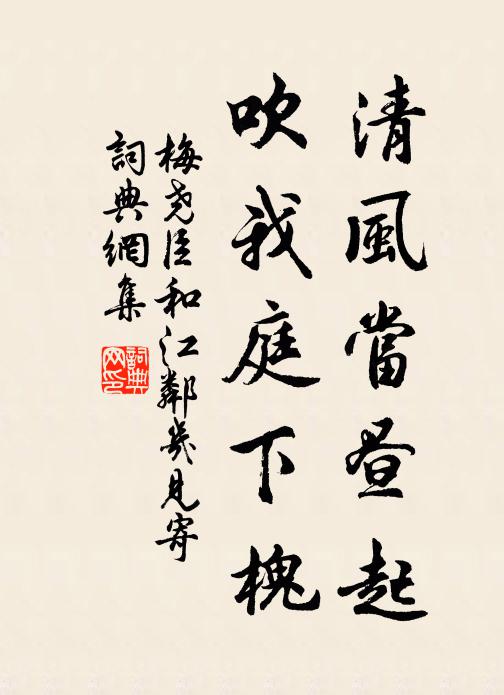 清風當昼起
吹我庭下槐
梅尧臣和江鄰幾見寄
詞典網集
詞典
网印